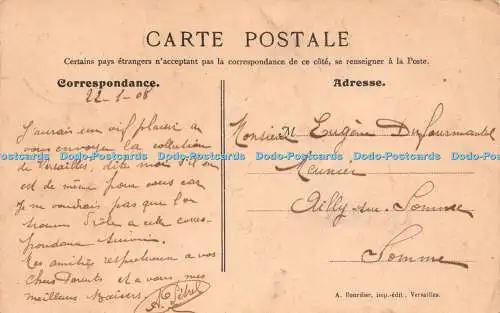 CARTE POSTALE
Certains pays étrangers n'acceptant pas la correspondance de ce côté, se renseigner à la Poste.
Correspondance.
Adresse.
22-1-08
J'aurais un vif plaisir à
vous envoyer la collection
de Versailles, dites moi s'il en
est de même pour vous car
Je ne voudrais pas que l'on
trouve drôle a cette corres-
pondance suivie.
Mes amitiés respectueux a vos
Chers Parents et a vous mes
meilleurs Baisers
Monsieur Eugène Dufourmantel
Meunier
Ailly sur Somme
Somme
A. Bourdier, imp.-édit., Versailles.
Dodo-Postcards Dodo-Postcards Dodo-Postcards Dodo-Postcards Dodo-Postcards